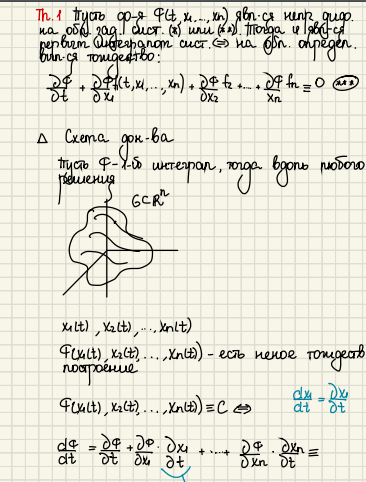 Th.1 Пусть ф-я Φ(t, x₁,..., xn) явл-ся непр. диф.
на обл. зад. сист. (*) или (**). Тогда и явл-ся
первым интегралом сист. ⇔ на обл. определ.
вып-ся тождество:
∂Φ/∂t + ∂Φ/∂x₁ f(t, x₁, ..., xn) + ∂Φ/∂x₂ f₂ + ... + ∂Φ/xn fn ≡ 0 (***)
Δ Схема док-ва
Пусть Φ - 1-й интеграл, тогда вдоль любого
решения
G⊂Rⁿ
x₁(t), x₂(t), ..., xn(t)
Φ(x₁(t), x₂(t), ..., xn(t)) - есть некое тождеств
построение
Φ(x₁(t), x₂(t), ..., xn(t)) ≡ C ⇔
dx₁/dt = ∂x₁/∂t
dΦ/dt = ∂Φ/∂t + ∂Φ/∂x₁ · ∂x₁/∂t + ... + ∂Φ/∂xn · ∂xn/∂t ≡